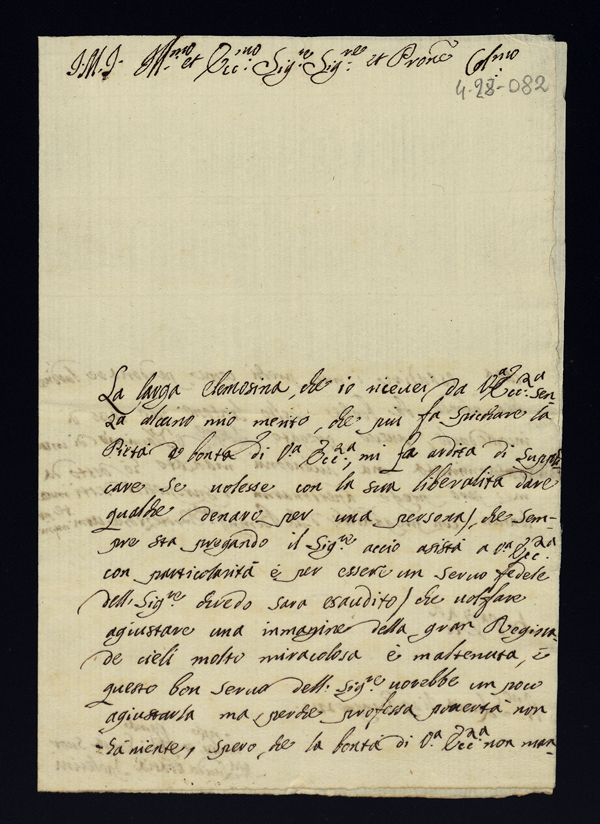 J.M.J. Ill.mo et Ecc.mo Sig.re Sig.re et Prone Col.mo
4-28-082
La larga elemosina, che io riceuei da V.a Ecc.za sen-
za alcuno mio merito, che più fa spichare la
Pietà e bontà di V.a Ecc.za, mi fa ardita di suppli
care se uolesse con la sua liberalità dare
qualche denaro per una persona, che sem-
pre sta pregando il Sig.re acciò asista a V.a Ecc.za
con particolarità è per essere un seruo fedele
dell. Sig.re chredo sara esaudito, che uol fare
agiustare una inmagine della gran Regina
de cieli molto miracolosa è maltenuta, è
questo bon seruo dell. Sig.re uorebbe un poco
agiustarla ma, perche professa pouertà non
hà niente, spero, che la bontà di V.a Ecc.za non man-